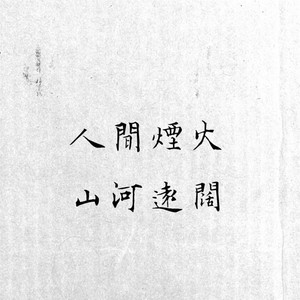 人間煙火
山河遠闊